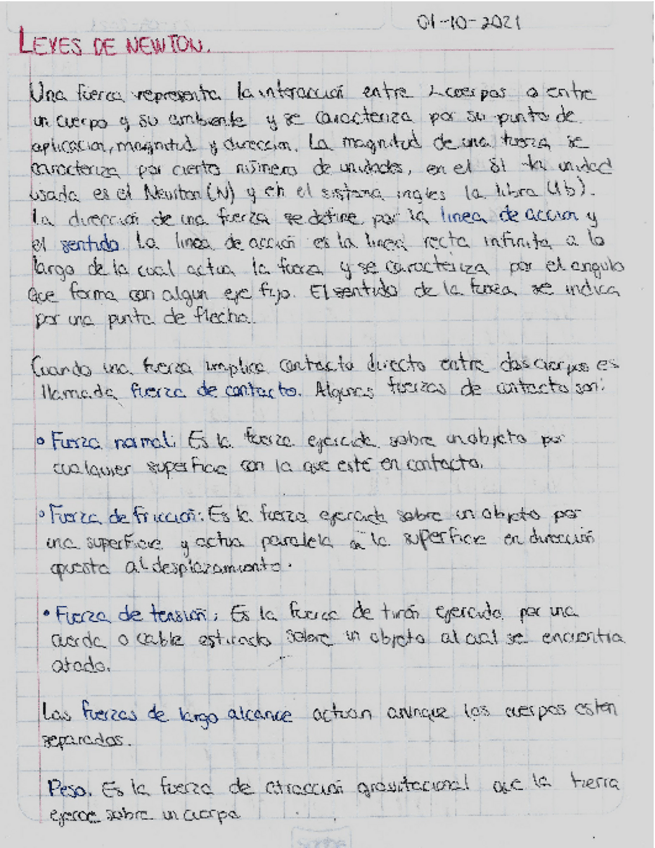 01-10-2021
LEYES DE NEWTON.
Una fuerza representa la interacción entre 2 cuerpos o entre
un cuerpo y su ambiente y se caracteriza por su punto de
aplicacion, magnitud y direccion. La magnitud de una fuerza se
caracteriza por cierto número de unidades, en el SI la unidad
usada es el Newton (N) y en el sistema ingles la libra (lb).
La dirección de una fuerza se define por la linea de accion y
el sentido. La linea de acción es la linea recta infinita a lo
largo de la cual actua la fuerza y se caracteriza por el angulo
que forma con algun eje fijo. El sentido de la fuerza se indica
por una punta de flecha.
Cuando una fuerza implica contacto directo entre dos cuerpos es
llamada fuerza de contacto. Algunas fuerzas de contacto son:
• Fuerza normal: Es la fuerza ejercida sobre un objeto por
cualquier superficie con la que esté en contacto.
• Fuerza de fricción: Es la fuerza ejercida sobre un objeto por
una superficie y actua paralela a la superficie en dirección
opuesta al desplazamiento.
• Fuerza de tensión: Es la fuerza de tirón ejercida por una
cuerda o cable estirado sobre un objeto al cual se encuentra
atado.
Las fuerzas de largo alcance actuan aunque los cuerpos esten
separados.
Peso. Es la fuerza de atracción gravitacional que la tierra
ejerce sobre un cuerpo